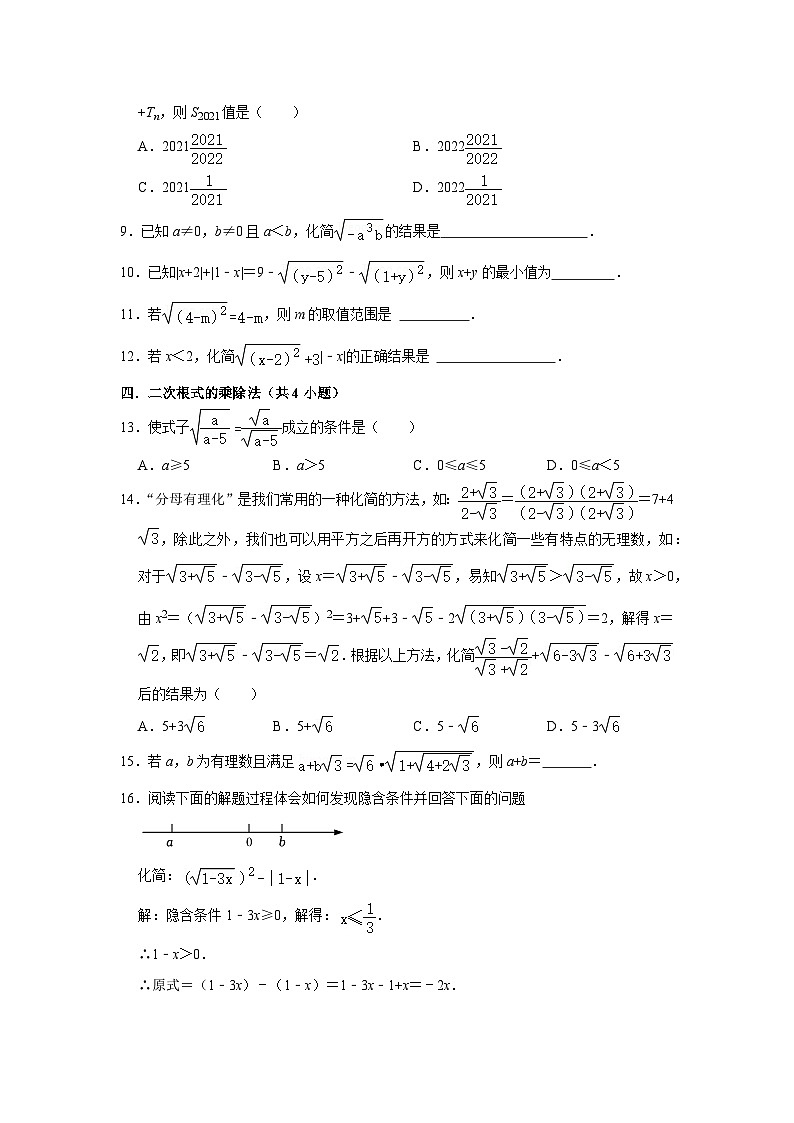 +Tₙ,则 S₂₀₂₁值是( )
A.2021$\frac{2021}{2022}$ B.2022$\frac{2021}{2022}$
C.2021$\frac{1}{2021}$ D.2022$\frac{1}{2021}$
9.已知 a≠0,b≠0 且 a<b,化简$\sqrt{-a^3b}$的结果是____________________.
10.已知|x+2|+|1﹣x|=9﹣$\sqrt{(y-5)^2}$﹣$\sqrt{(1+y)^2}$,则 x+y 的最小值为_________.
11.若$\sqrt{(4-m)^2}$=4-m,则 m 的取值范围是 __________.
12.若 x<2,化简$\sqrt{(x-2)^2}$+3|﹣x|的正确结果是 _________________.
四.二次根式的乘除法(共 4 小题)
13.使式子$\sqrt{\frac{a}{a-5}}$=$\frac{\sqrt{a}}{\sqrt{a-5}}$成立的条件是( )
A.a≥5 B.a>5 C.0≤a≤5 D.0≤a<5
14.“分母有理化”是我们常用的一种化简的方法,如:$\frac{2+\sqrt{3}}{2-\sqrt{3}}$=$\frac{(2+\sqrt{3})(2+\sqrt{3})}{(2-\sqrt{3})(2+\sqrt{3})}$=7+4
$\sqrt{3}$,除此之外,我们也可以用平方之后再开方的方式来化简一些有特点的无理数,如:
对于$\sqrt{3+\sqrt{5}}$﹣$\sqrt{3-\sqrt{5}}$,设 x=$\sqrt{3+\sqrt{5}}$﹣$\sqrt{3-\sqrt{5}}$,易知$\sqrt{3+\sqrt{5}}$>$\sqrt{3-\sqrt{5}}$,故 x>0,
由 x²=($\sqrt{3+\sqrt{5}}$﹣$\sqrt{3-\sqrt{5}}$)²=3+$\sqrt{5}$+3﹣$\sqrt{5}$﹣2$\sqrt{(3+\sqrt{5})(3-\sqrt{5})}$=2,解得 x=
$\sqrt{2}$,即$\sqrt{3+\sqrt{5}}$﹣$\sqrt{3-\sqrt{5}}$=$\sqrt{2}$.根据以上方法,化简$\frac{\sqrt{3}-\sqrt{2}}{\sqrt{3}+\sqrt{2}}$+$\sqrt{6-3\sqrt{3}}$﹣$\sqrt{6+3\sqrt{3}}$
后的结果为( )
A.5+3$\sqrt{6}$ B.5+$\sqrt{6}$ C.5﹣$\sqrt{6}$ D.5﹣3$\sqrt{6}$
15.若 a,b 为有理数且满足 a+b$\sqrt{3}$=$\sqrt{6}$•$\sqrt{1+\sqrt{4+2\sqrt{3}}}$,则 a+b=_______.
16.阅读下面的解题过程体会如何发现隐含条件并回答下面的问题
a 0 b
化简:($\sqrt{1-3x}$)²-|1-x|.
解:隐含条件 1﹣3x≥0,解得:x≤$\frac{1}{3}$.
∴1﹣x>0.
∴原式=(1﹣3x)﹣(1﹣x)=1﹣3x﹣1+x=﹣2x.